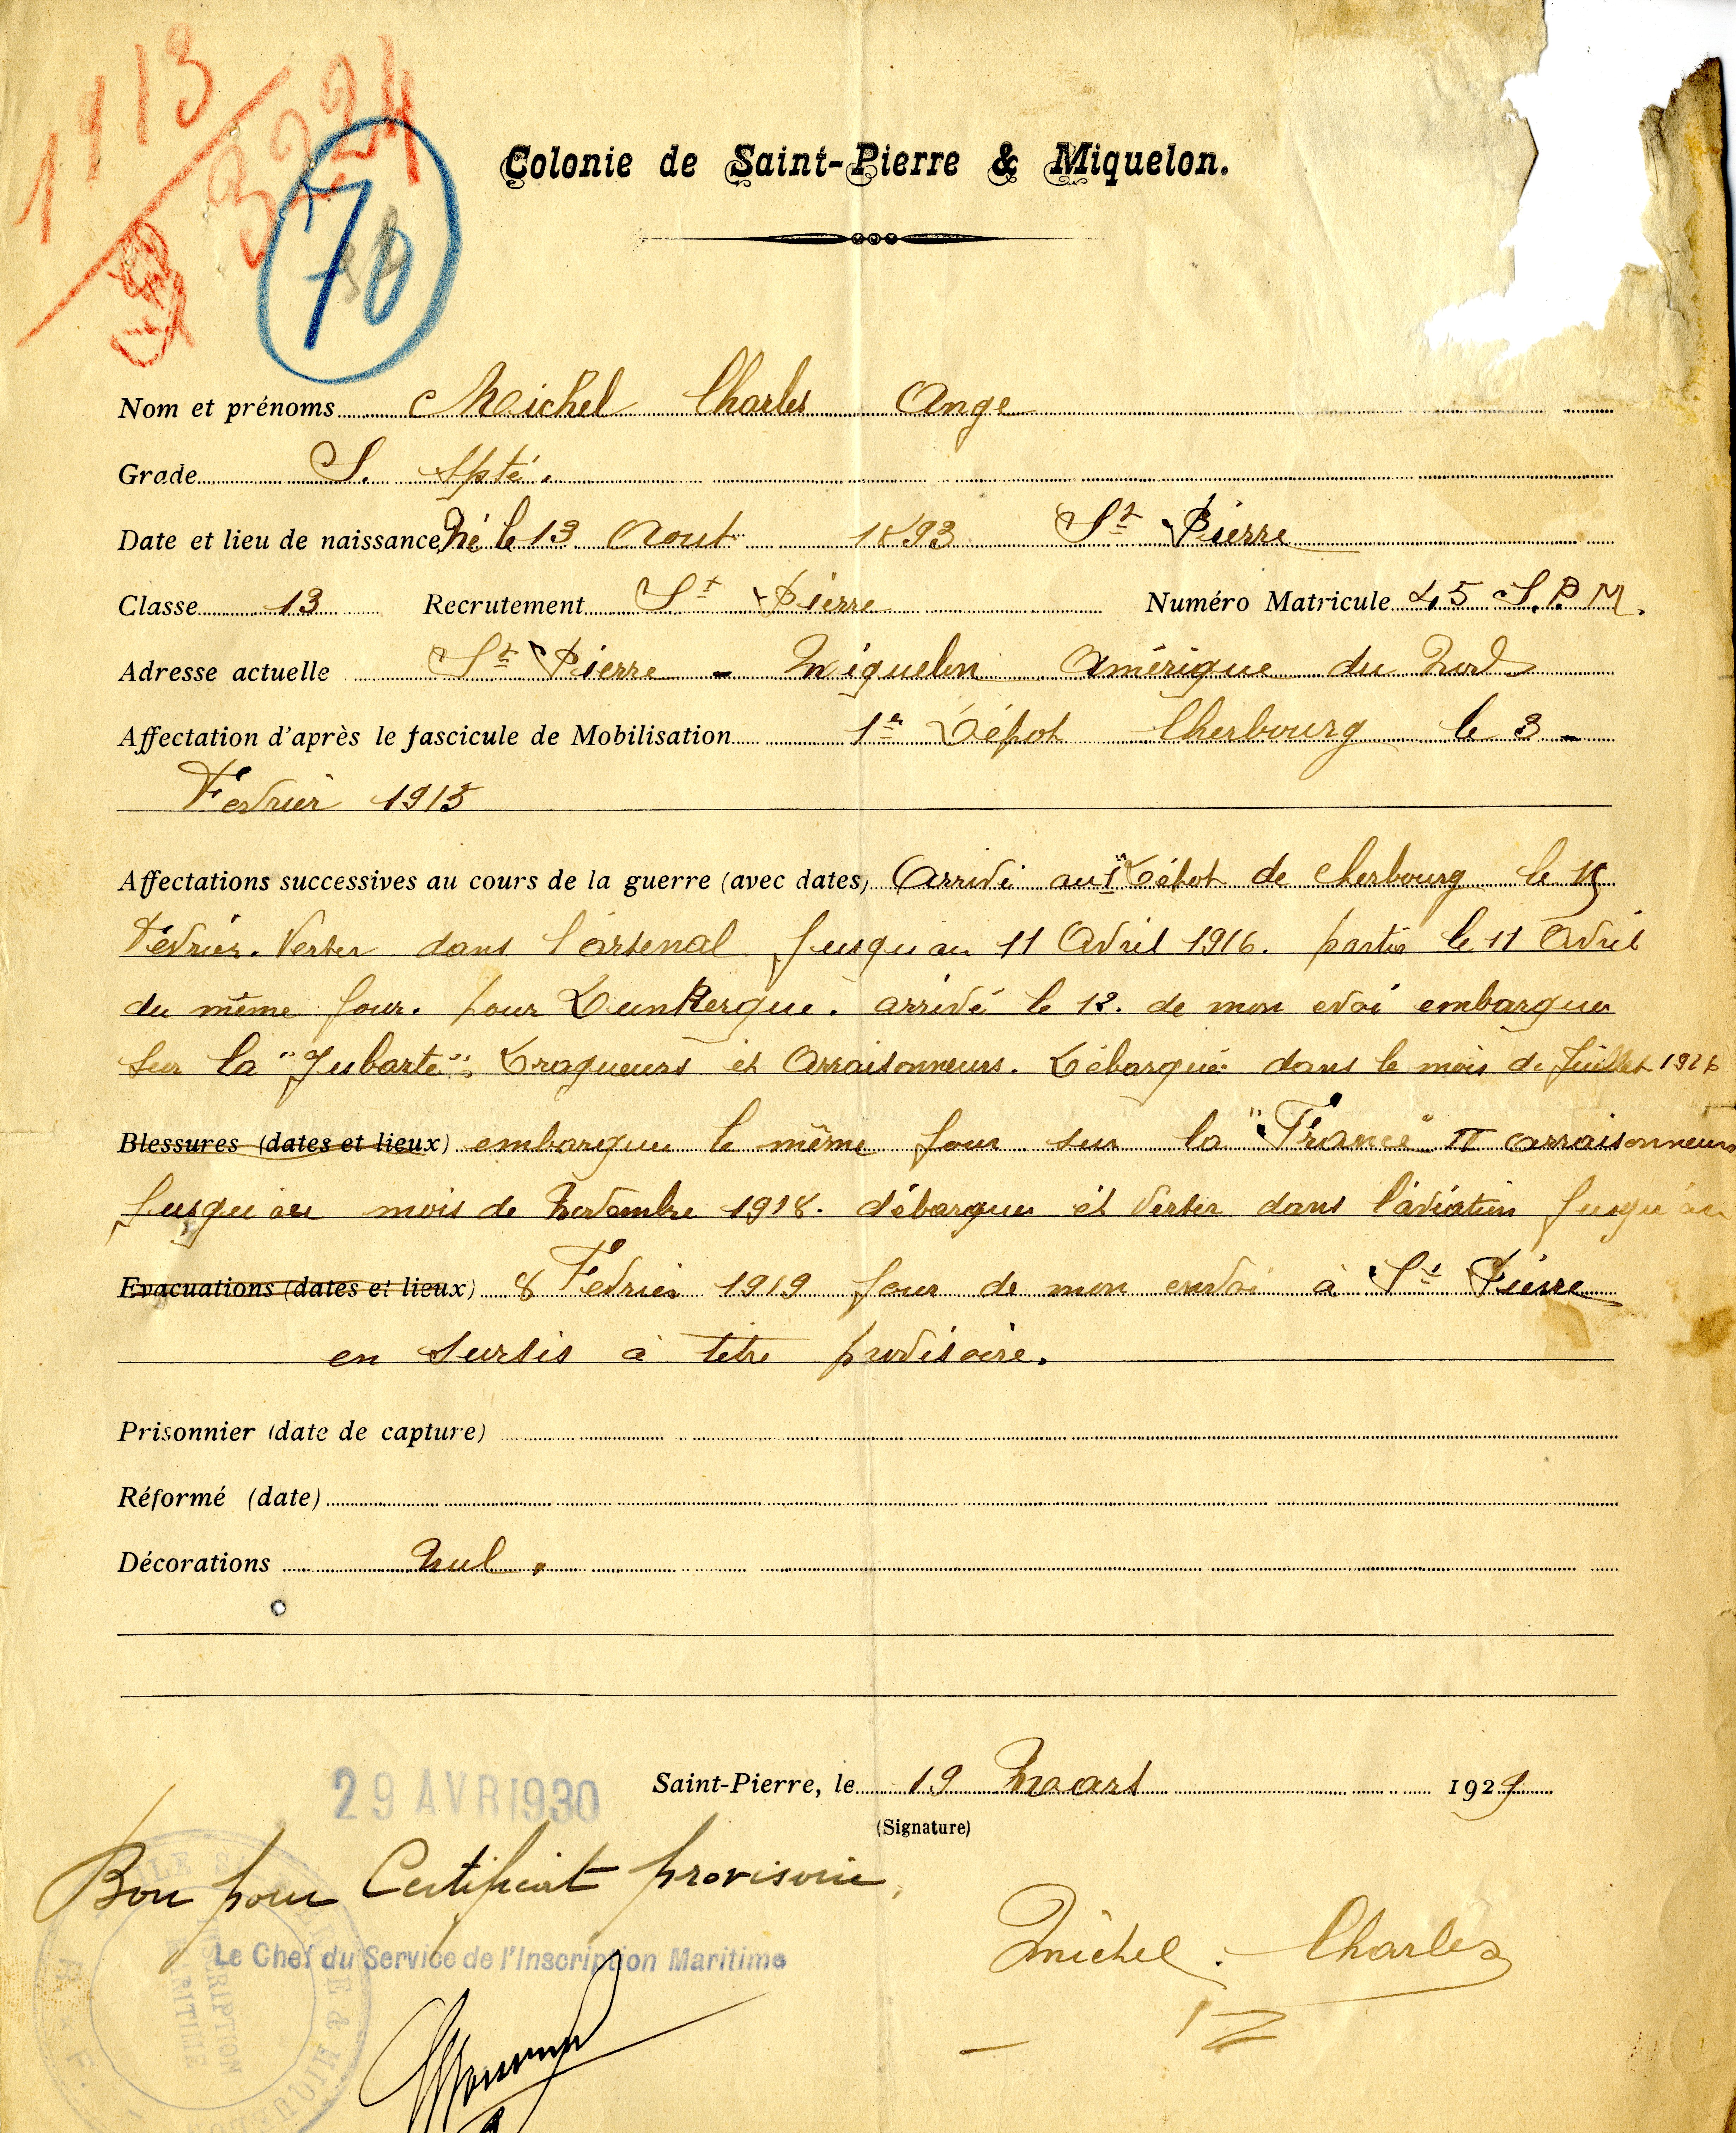 1913
3224
70
Colonie de Saint-Pierre & Miquelon.
Nom et prénoms Michel Charles Ange
Grade S. Spté.
Date et lieu de naissance Né le 13 Aout 1893 St Pierre
Classe 13 Recrutement St Pierre Numéro Matricule 45 S.P.M.
Adresse actuelle St Pierre - Miquelon Amérique du Nord
Affectation d'après le fascicule de Mobilisation 1er Dépot Cherbourg le 3 -
Fevrier 1915
Affectations successives au cours de la guerre (avec dates) Arrivé au 1er Dépot de Cherbourg le 15
Fevrier. Verser dans l'arsenal Jusqu'au 11 Avril 1916. partis le 11 Avril
du même Jour. pour Dunkerque. arrivé le 12. de mon evoi embarquer
sur la "Jubarte", Dragueurs et Arraisonneurs. Débarqué dans le mois de Juillet 1916
Blessures (dates et lieux) embarquer le même Jour sur la "France" II arraisonneurs
Jusqu'au mois de Novembre 1918. débarquer et Verser dans l'aviation Jusqu'au
Evacuations (dates et lieux) 8 Fevrier 1919 Jour de mon envoi à St Pierre
en sursis à titre provisoire.
Prisonnier (date de capture)
Réformé (date)
Décorations Nul.
29 AVR 1930
Saint-Pierre, le 19 Mars 1929
(Signature)
Bon pour Certificat provisoire,
Le Chef du Service de l'Inscription Maritime
Michel. Charles
INSCRIPTION
MARITIME